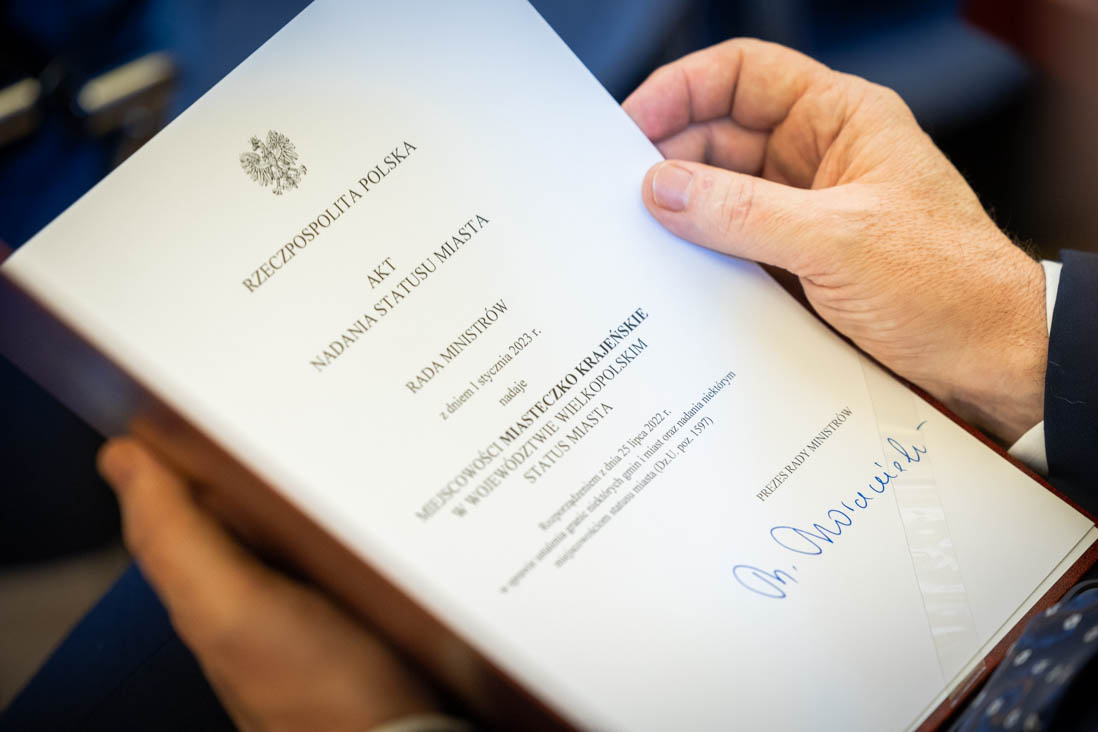 RZECZPOSPOLITA POLSKA
AKT
NADANIA STATUSU MIASTA
RADA MINISTRÓW
z dniem 1 stycznia 2023 r.
nadaje
MIEJSCOWOŚCI MIASTECZKO KRAJEŃSKIE
W WOJEWÓDZTWIE WIELKOPOLSKIM
STATUS MIASTA
Rozporządzeniem z dnia 25 lipca 2022 r.
w sprawie ustalenia granic niektórych gmin i miast oraz nadania niektórym
miejscowościom statusu miasta (Dz.U. poz. 1597)
PREZES RADY MINISTRÓW
M. Morawiecki